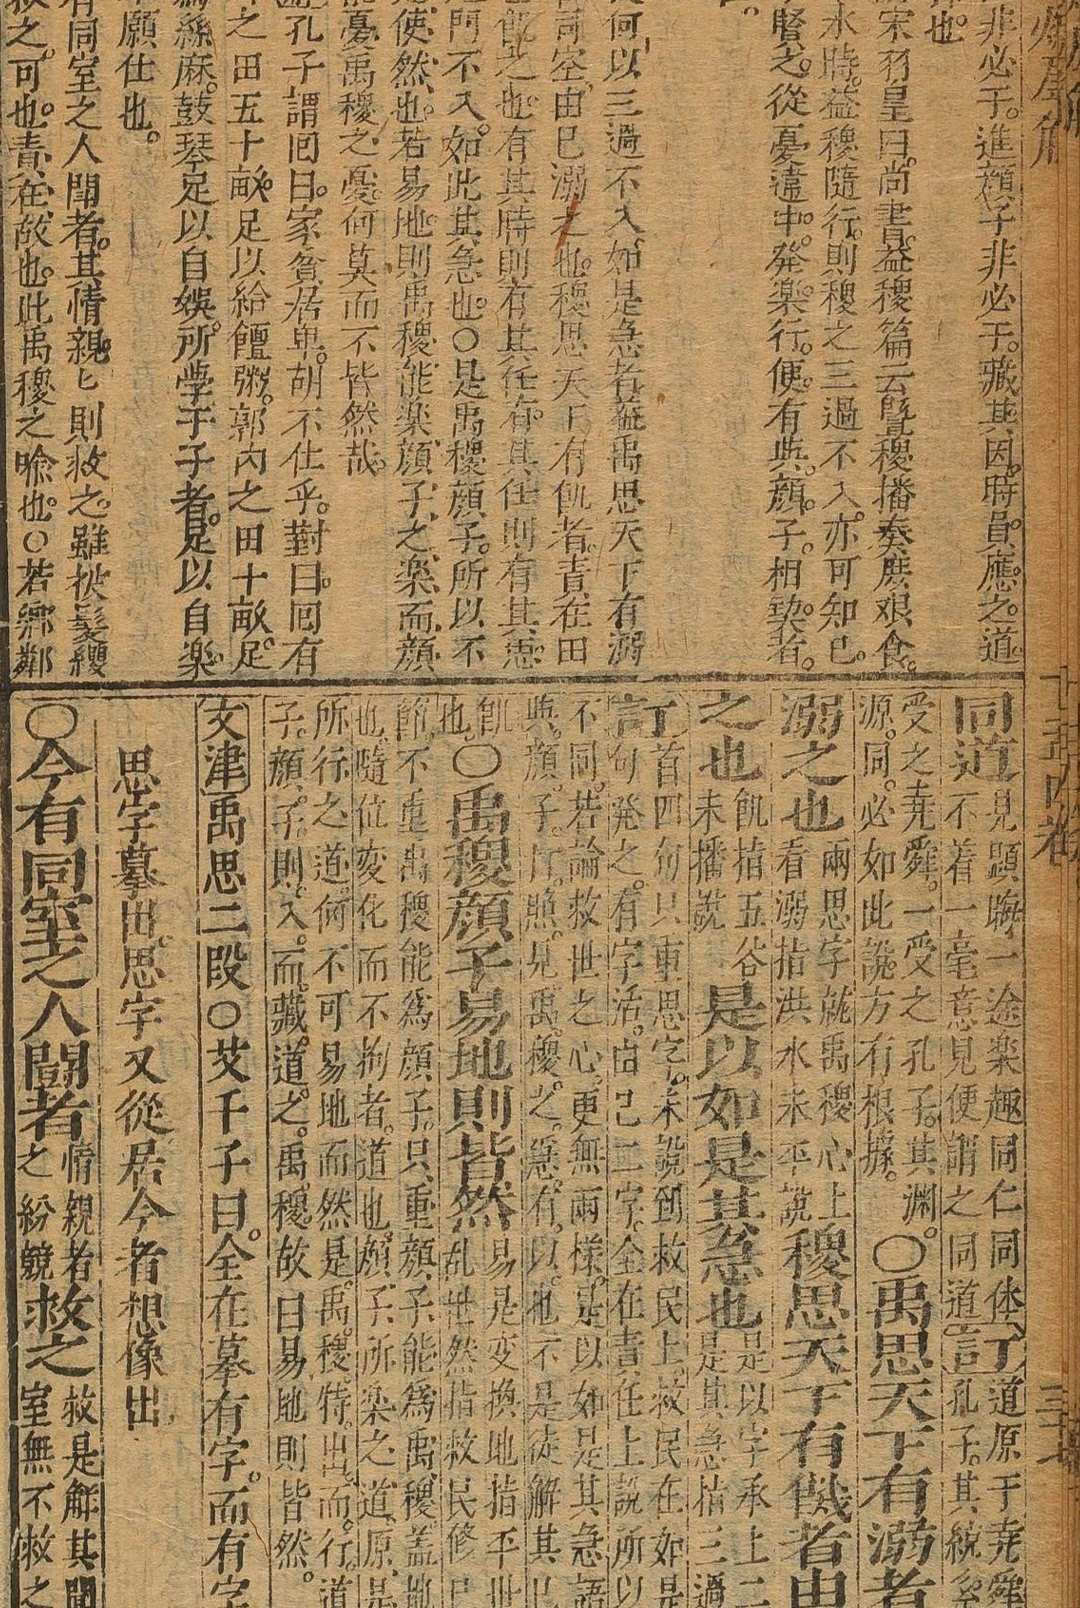 非必于。進顏子非必于。藏其因。時員應之。道
也
宋羽皇曰。尚書。益稷篇云。曁稷播奏庶艱食。
水時。益稷隨行。則稷之三過不入。亦可知已。
督之。從憂違中。発楽行。便有與。顏子。相契者。
何以三過不入。如是急者。葢禹思天下有溺
司空。由己溺之也。稷思天下有飢者。責在田
之也。有其時則有其任。有其任則有其思。
門不入。如此其急也。○是禹稷顏子。所以不
使然也。若易地。則禹稷能楽顏子之楽。而顏
能憂禹稷之憂。何莫而不皆然哉。
孔子謂回曰。家貧居卑。胡不仕乎。對曰。回有
之田五十畝。足以給饘粥。郭內之田十畝。足
為絲麻。鼓琴足以自娛。所學于子者。足以自楽。
願仕也。
有同室之人鬪者。其情親。親則救之。雖被髮纓
救之。可也。責在故也。此禹稷之喩也。○若鄉鄰
同道 見顯晦一途楽趣同仁同体 訂 道原于尭舜
不着一毫意見便謂之同道 言 孔子。其統系
受之尭舜。一受之孔子。其渊
源。同。必如此説。方有根據。 ○禹思天下有溺者
溺之也 兩思字就禹稷心上
看溺指洪水未平説 稷思天下有饑者由
之也 飢指五谷
未播説 是以如是其急也 是以字承上二
是其急指三過
訂 首四句只重思字。未說到救民上。救民在如是
句発之。有字活。由己二字。全在責任上説所以
不同。若論救世之心。更無兩様。是以如是其急語
與。顏子。行照。見禹。稷之。急。有。以。也。不是徒解其己
飢
也。○禹稷顏子易地則皆然 易是変換地指平世
乱世然指救民修己
節。不重禹稷能為顏子。只重顏子能為禹稷。盖地
也。隨位変化而不拘者。道也。顏子。所楽之道。原是
所行之道。何不可易地而然。是。禹。稷。特。出。而。行。道
子。顏。子。則。入。而。藏。道。之。禹。稷。故曰易地則皆然。
文津 禹思二段○艾千子曰。全在摹有字。而有字
思字摹出。思字又從居今者想像出
○今有同室之人鬪者 情親者
之紛競 救之 救是解其鬪
室無不救之